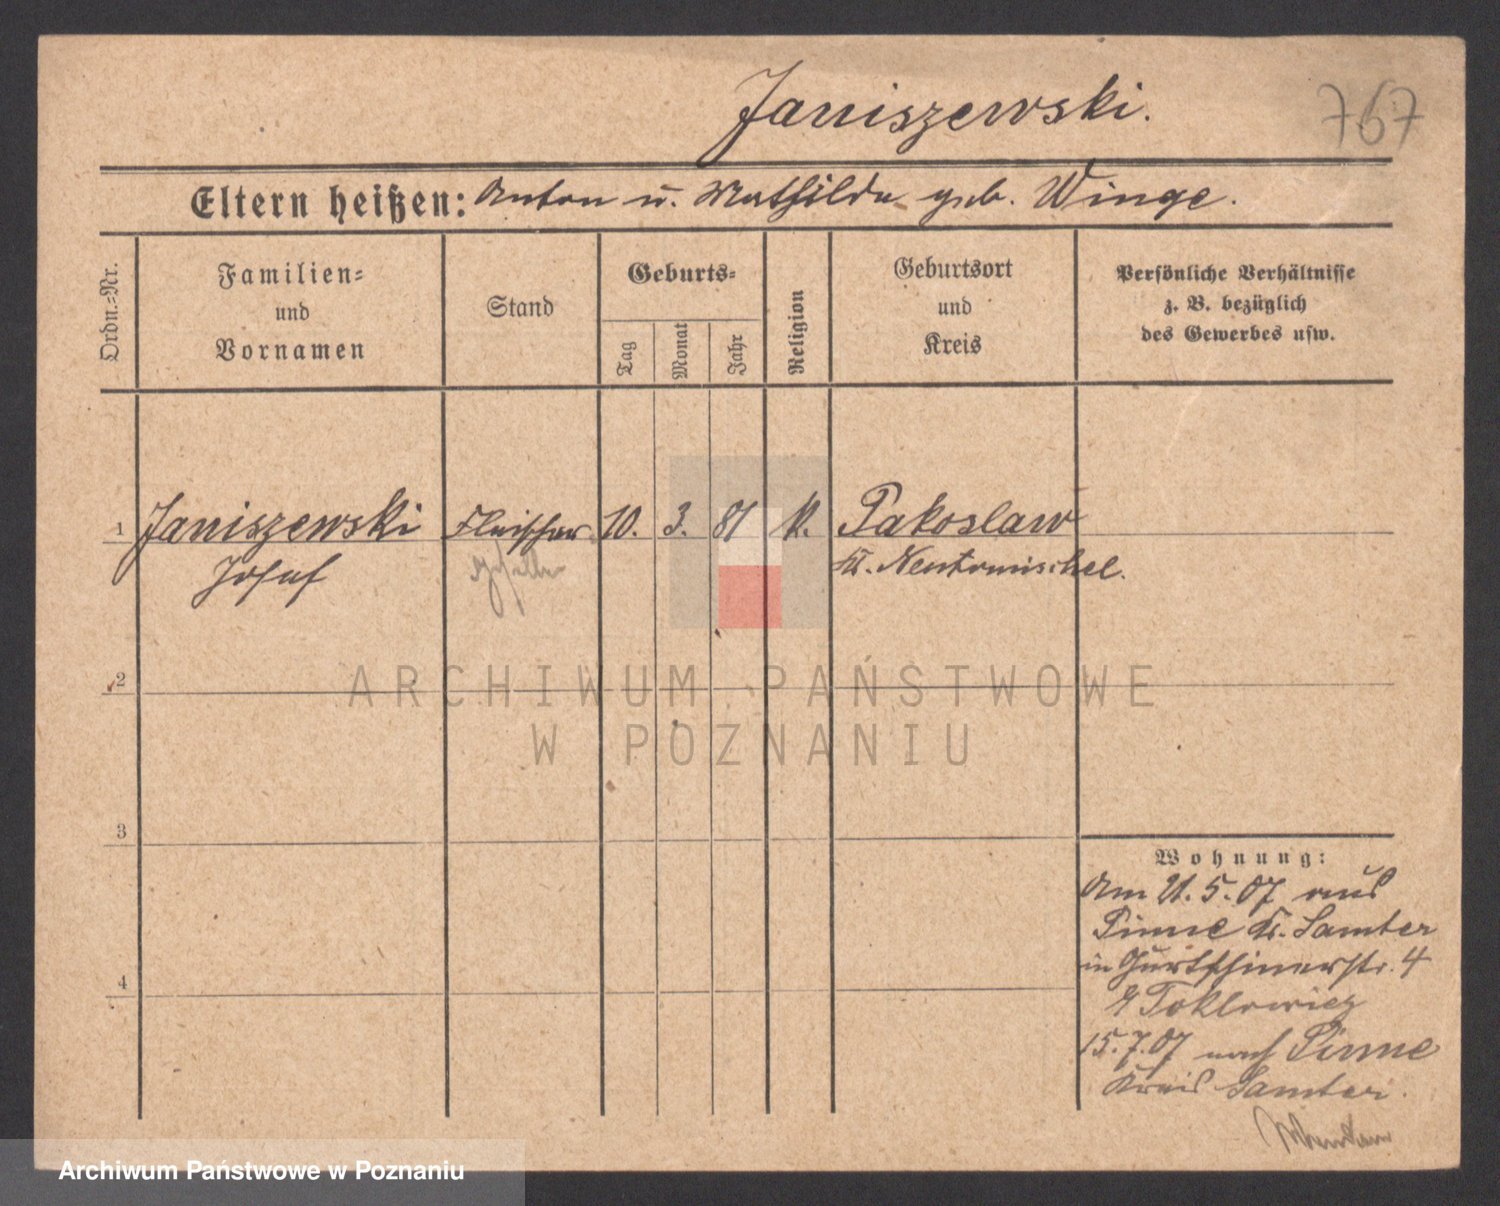 Janiszewski.
767
Eltern heißen: Anton u. Mathilde geb. Winge.
Ordn.-Nr.
Familien-
und
Vornamen
Stand
Geburts-
Tag
Monat
Jahr
Religion
Geburtsort
und
Kreis
Persönliche Verhältnisse
z. B. bezüglich
des Gewerbes usw.
1 Janiszewski Fleischer 10. 3. 81 k. Pakoslaw
Josef geselle Kr. Neutomischel.
2
ARCHIWUM PAŃSTWOWE
W POZNANIU
3
4
Wohnung:
Am 21.5.07 aus
Pinne Kr. Samter
in Gurtschinerstr. 4
Toklowicz
15.7.07 nach Pinne
Kreis Samter.
Archiwum Państwowe w Poznaniu